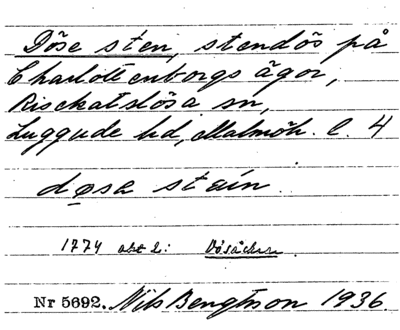 Döse sten, stendös på
Charlottenborgs ägor,
Risekatslösa sn,
Luggude hd, Malmöh. l. 4
døsa stain.
1774 akt 2: Dösåcker
Nr 5692. Nils Bengtson 1936.